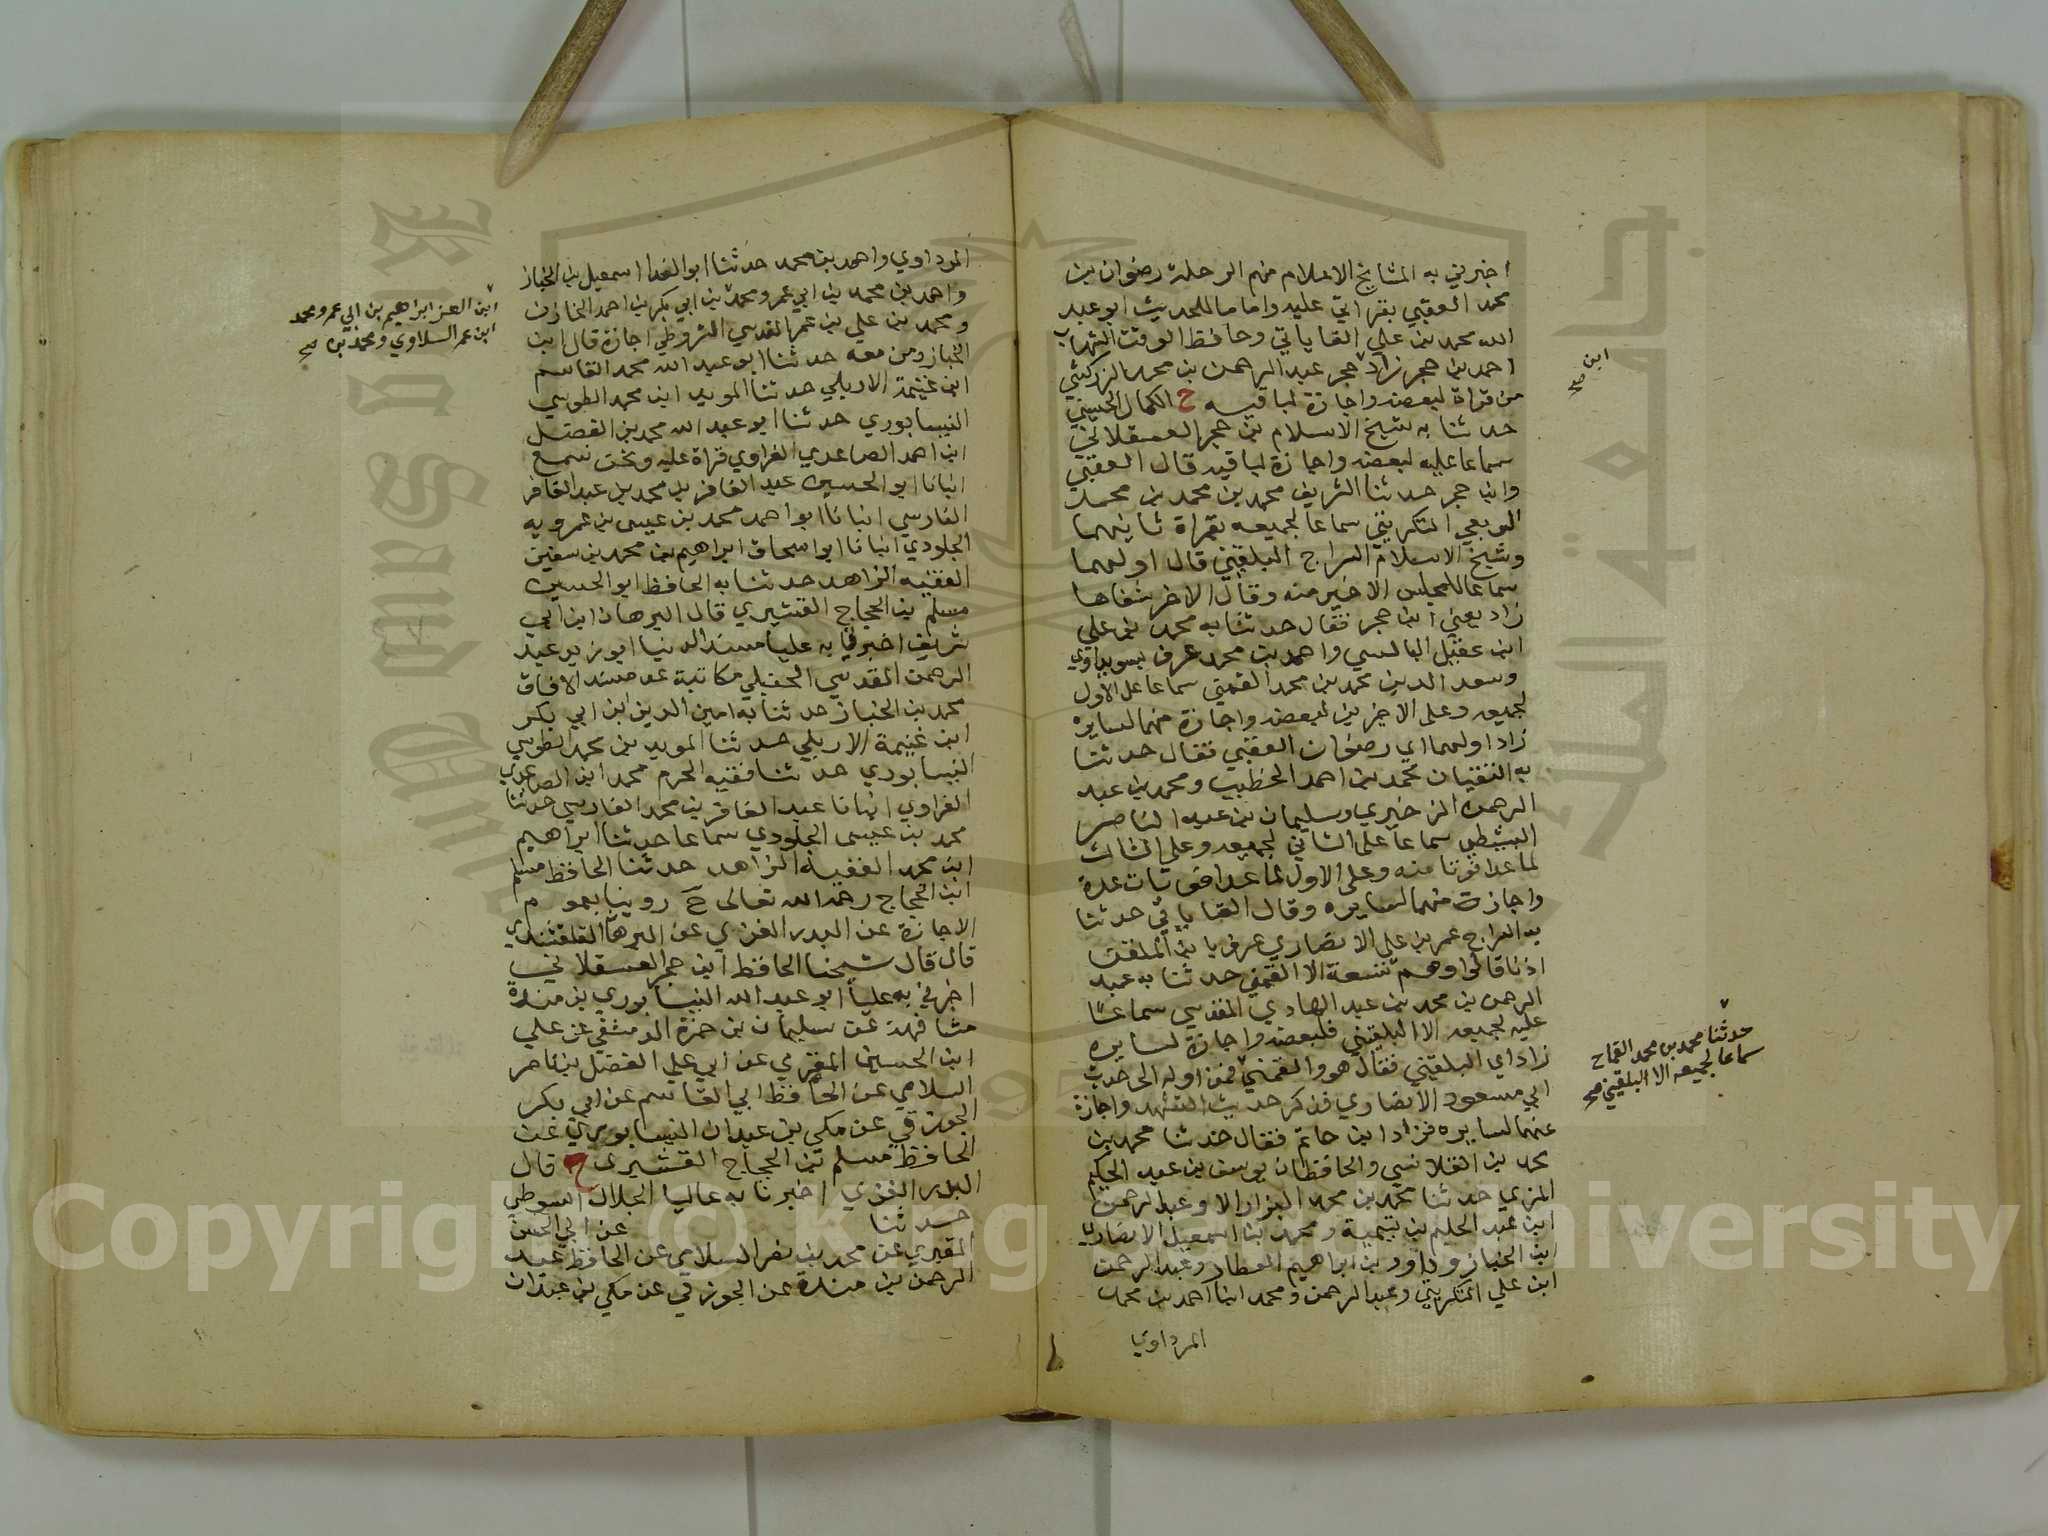 اخبرني به المشايخ الاعلام منهم الرحلة رضوان بن
محمد العقبي بقراتي عليه واماما للحديث ابو عبد
الله محمد بن علي القاياتي وحافظ الوقت الشهاب
احمد بن حجر زاد حجر عبد الرحمن بن محمد الزركشي
ابن صح
من قراة لبعضه واجازة لباقيه ح الكمال الحسيني
حدثنا به شيخ الاسلام بن حجر العسقلاني
سماعا عليه لبعضه واجازة لباقيه قال العقبي
وابن حجر حدثنا الشريف محمد بن محمد بن محمد
الربعي التكريتي سماعا لجميعه بقراة ثانيهما
وشيخ الاسلام السراج البلقيني قال اولهما
سماعا للمجلس الاخير منه وقال الاخر شفاها
زاد يعني ابن حجر فقال حدثنا به محمد بن علي
ابن عقيل البالسي واحمد بن محمد عرف بسويداوي
وسعد الدين محمد بن محمد القمني سماعا على الاول
لجميعه وعلى الاخيرين لبعضه واجازة منهما لسايره
زاد اولهما اي رضوان العقبي فقال حدثنا
به التقيان محمد بن احمد الخطيب ومحمد بن عبد
الرحمن الزخيري وسليمان بن عبد الناصر
سماعا على الثاني لجميعه وعلى الثالث
لما عدا فوتا منه وعلى الاول لما عدا فوتات عدة
واجازة منهما لسايره وقال القاياتي حدثنا
به السراج عمر بن علي الانصاري عرف بابن الملقن
اذنا قالوا وهم تسعة الا القمني حدثنا به عبد
الرحمن بن محمد بن عبد الهادي المقدسي سماعا
عليه لجميعه الا البلقيني فلبعضه واجازة لسايره
زاد اي البلقيني فقال هو والقمني فمن اوله الى حديث
حدثنا محمد بن محمد القماح
سماعا لجميعه الا البلقيني صح
ابي مسعود الانصاري فذكر حديث التشهد واجازة
عنهما لسايره فزاد ابن حاتم فقال حدثنا محمد بن
محمد بن القلانسي والحافظان يوسف بن عبد الحكيم
المزي حدثنا محمد بن محمد البزار الا وعبد الرحمن
ابن عبد الحليم بن تيمية ومحمد بن اسمعيل الانصاري
ابن الخباز وداود بن ابراهيم العطار وعبد الرحمن
ابن علي التكريتي وعبد الرحمن ومحمد ابنا احمد بن محمد
المرداوي
المرداوي واحمد بن محمد حدثنا ابو الفدا اسمعيل بن الخباز
واحمد بن محمد بن ابي عمر ومحمد بن ابي بكر بن احمد الخازن
ابن العز ابراهيم بن ابي عمر ومحمد
ابن عمر السلاوي ومحمد بن صح
ومحمد بن علي بن عمر المقدسي الشروطي اجازة قال ابن
الخباز ومن معه حدثنا ابو عبد الله محمد القاسم
ابن غنيمة الاربلي حدثنا المويد ابن محمد الطوسي
النيسابوري حدثنا ابو عبد الله محمد بن الفضل
ابن احمد الصاعدي الفراوي قراة عليه ونحن نسمع
انبانا ابو الحسين عبد الغافر بن محمد بن عبد الغافر
الفارسي انبانا ابو احمد محمد بن عيسى بن عمرويه
الجلودي انبانا ابو اسحاق ابراهيم بن محمد بن سفين
الفقيه الزاهد حدثنا به الحافظ ابو الحسين
مسلم بن الحجاج القشيري قال البرهان ابن ابي
شريف اخبرني به عليا مسند الدنيا ابو زيد عبد
الرحمن المقدسي الحنبلي مكاتبة عن مسند الافاق
محمد بن الخباز حدثنا به امين الدين ابن ابي بكر
ابن غنيمة الاربلي حدثنا المويد بن محمد الطوسي
النيسابوري حدثنا فقيه الحرم محمد ابن الصاعدي
الفراوي انبانا عبد الغافر بن محمد الفارسي حدثنا
محمد بن عيسى الجلودي سماعا حدثنا ابراهيم
ابن محمد الفقيه الزاهد حدثنا الحافظ مسلم
ابن الحجاج رحمه الله تعالى ح روينا بعموم
الاجازة عن البدر الغزي عن البرهان القلقشندي
قال قال شيخنا الحافظ ابن حجر العسقلاني
اخبرني به عليا ابو عبد الله النيسابوري بن مندة
مشافهة عن سليمان بن حمزة الدمشقي عن علي
ابن الحسين المقري عن ابي علي الفضل بن ناصر
السلامي عن الحافظ ابي القاسم عن ابي بكر
الجوزقي عن مكي بن عبدان النيسابوري عن
الحافظ مسلم بن الحجاج القشيري ح قال
البدر الغزي اخبرنا به عاليا الجلال السيوطي
حدثنا عن ابي الحسن
المقيري عن محمد بن نصر السلامي عن الحافظ عبد
الرحمن بن مندة عن الجوزقي عن مكي بن عبدان
Copyright © King Saud University
جامعة الملك سعود
King Saud University